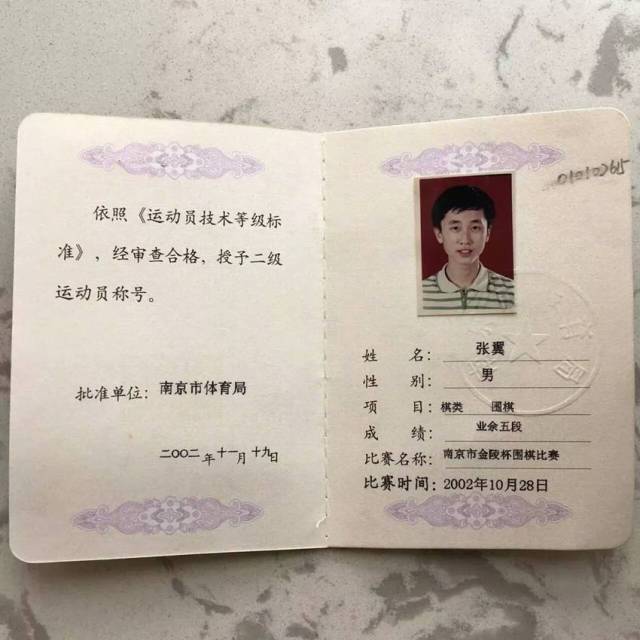 依照《运动员技术等级标
准》，经审查合格，授予二级
运动员称号。
批准单位：南京市体育局
二〇〇二年十一月十九日
01010265
姓 名：张翼
性 别：男
项 目：棋类 围棋
成 绩：业余五段
比赛名称：南京市金陵杯围棋比赛
比赛时间：2002年10月28日